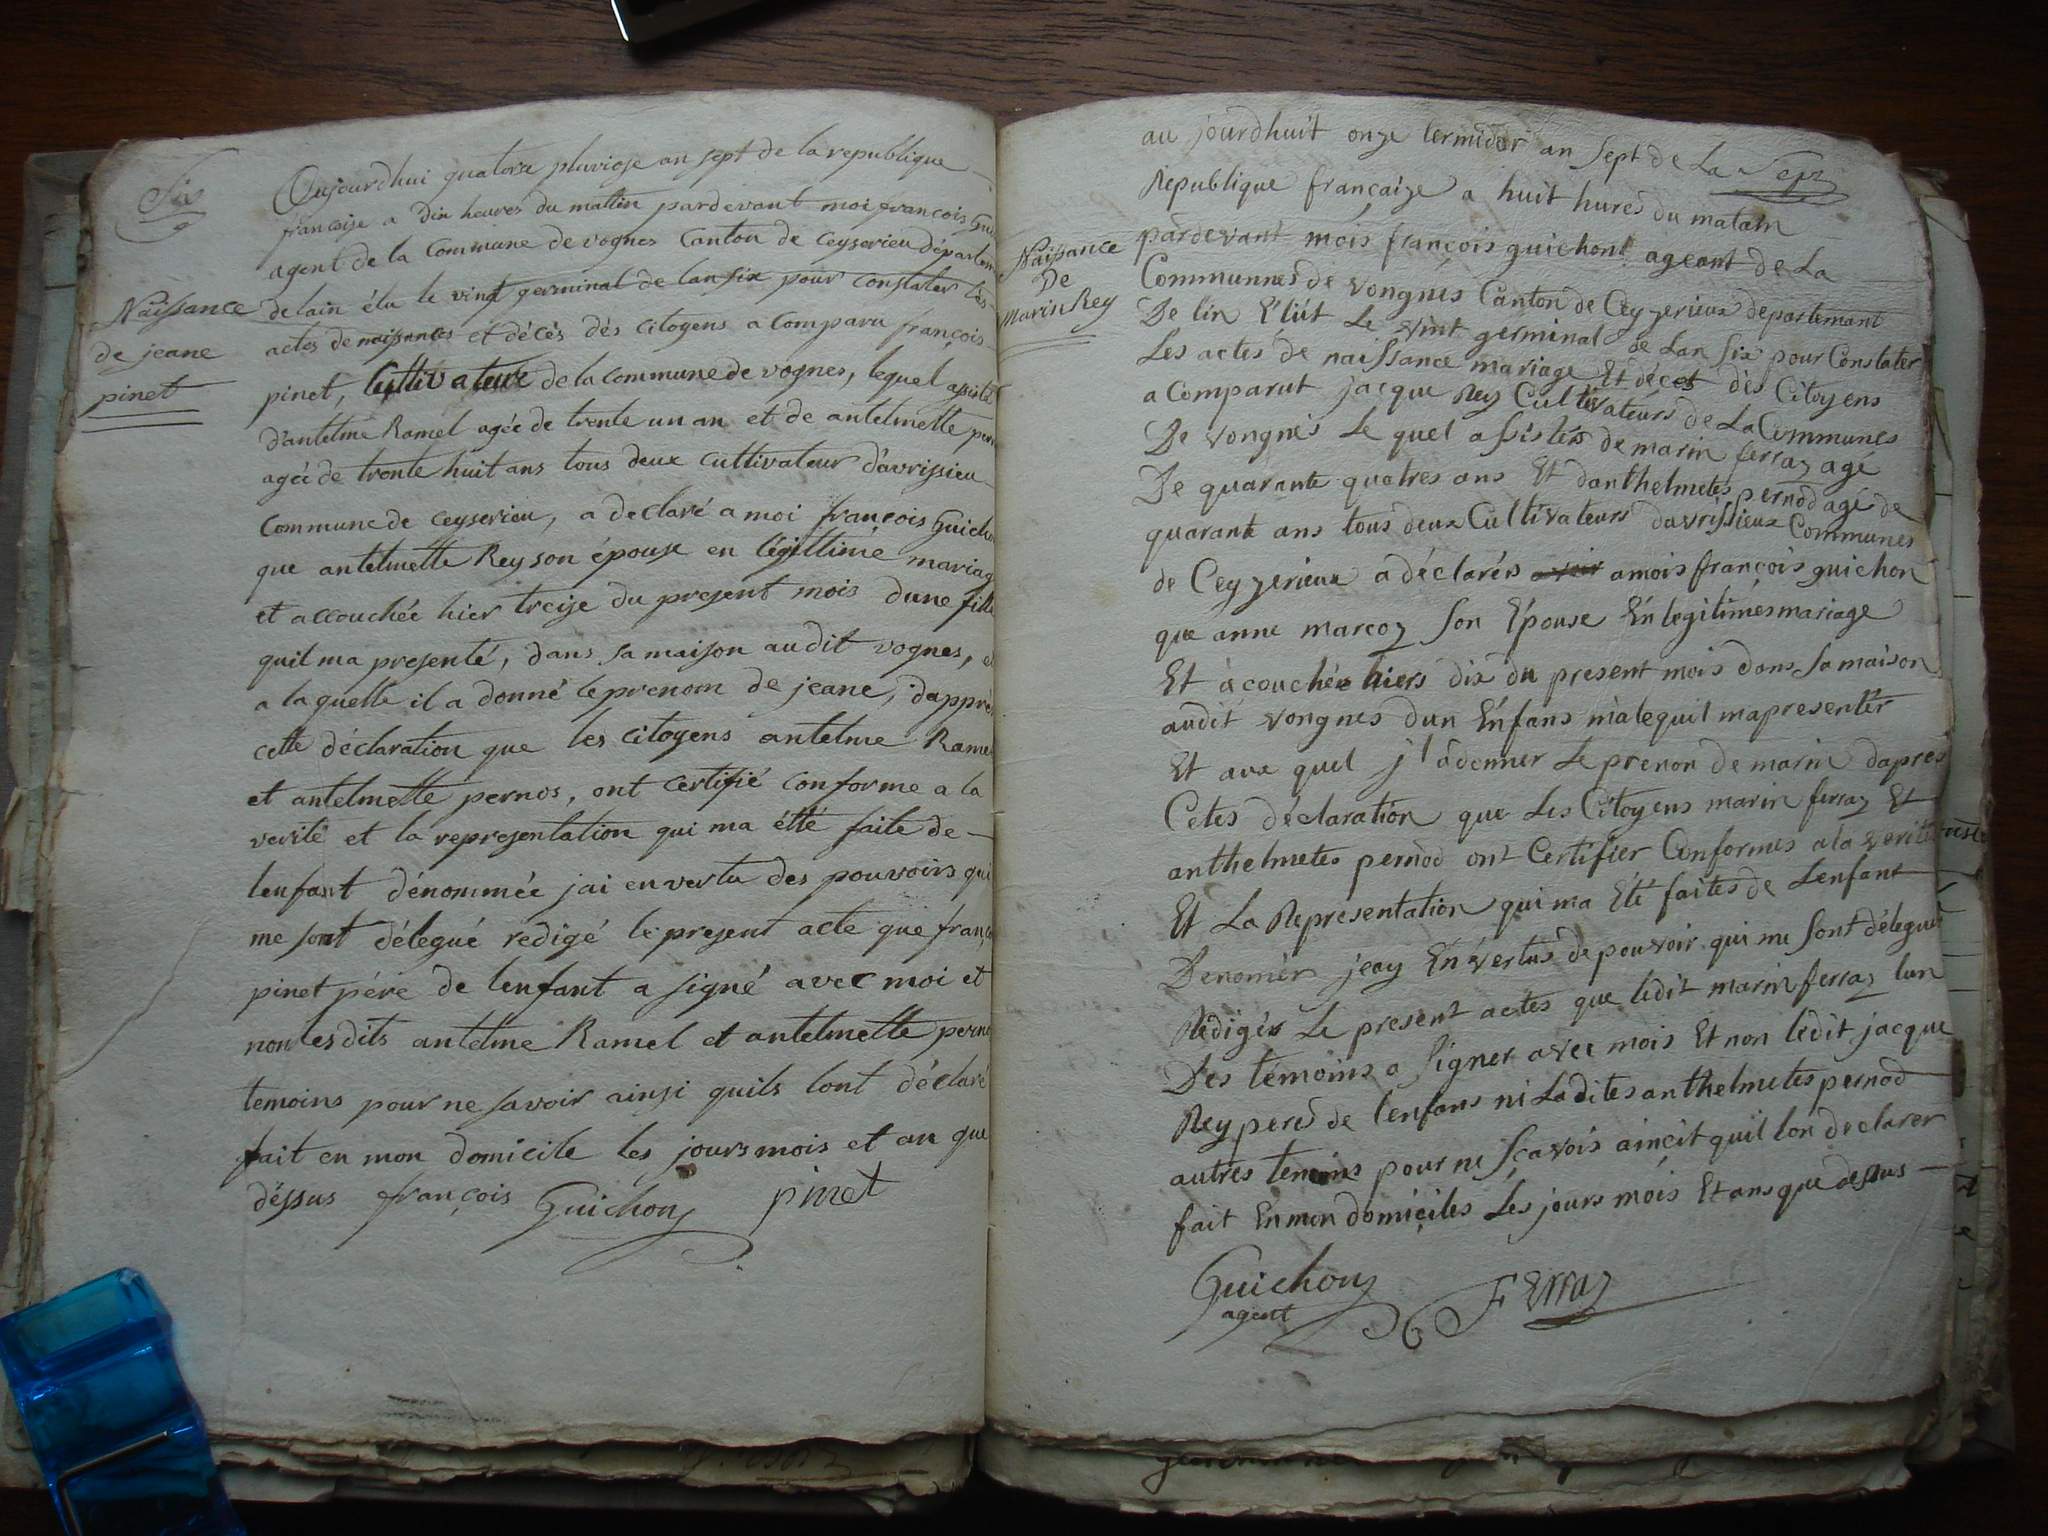 Six
Naissance
de jeane
pinet
Oujourdhui quatorse pluviose an sept de la republique
françoise a dix heures du mattin pardevant moi françois Gui
agent de la Commune de vognes Canton de Ceyserieu départem
de lain élu le vingt germinal de lan six pour constater les
actes de naissances et décès dés citoyens a Comparu françois
pinet, Cultivateur de la commune de vognes, lequel assisté
d'antelme Ramel agée de trente un an et de antelmette pern
agée de trente huit ans tous deux cultivateur d'avrissieu
Commune de Ceyserieu, a declaré a moi françois Guicho
que antelmette Rey son épouse en légittime mariag
et accouchée hier treise du present mois dune fille
quil ma presenté, dans sa maison audit vognes, e
a laquelle il a donné le prenom de jeane, dapprés
cette déclaration que les citoyens antelme Ramel
et antelmette pernos, ont certifié conforme a la
verité et la representation qui ma étté faite de
lenfant dénommée jai en vertu des pouvoirs qui
me sont délegué redigé le present acte que franço
pinet pére de lenfant a signé avec moi et
non lesdits antelme Ramel et antelmette perno
temoins pour ne savoir ainsi quils lont déclaré
fait en mon domicile les jours mois et an que
déssus françois Guichon pinet
Sept
Naissance
De
Marin Rey
au jourdhuit onze termidor an Sept de La
Republique françaize a huit hures du matain
pardevant mois françois guichont ageant de La
Communnes de vongnes Canton de Ceyzerieux departemant
De lin Eliut Le vint germinal de Lan Six pour Constater
Les actes de naissance mariage Et décet dès Citoyens
a Comparut jacque Rey Cultivateurs de La Communes
De vongnes Le quel assistés de marin ferraz agé
De quarante quatres ans Et danthelmetes pernod agé de
quarante ans tous deux Cultivateurs davrissieux Communes
de Ceyzerieux a déclarérs avoir amois françois guichon
que anne marcoz Son Épouse En legitimes mariage
Et acouchée hiers dix du present mois dans Sa maison
audit vongnes dun Enfans male quil mapresenter
Et aux quel j'l a donner Le prenon de marin dapres
Cetes déclaration que Les Citoyens marin ferraz Et
anthelmetes pernod ont Certifier Conformes a la verité
Et La Representation qui ma Été faites de Lenfant
Denomér jeay En vertus de pouvoir qui me Sont délegué
Redigér Le present actes que ledit marin ferraz lun
Des témoins a Signer avec mois Et non ledit jacque
Rey peres de lenfans ni La dites anthelmetes pernod
autres temoins pour ne Sçavois ainçit quil lon declarer
fait En mon domiciles Les jours mois Et ans que dessus
Guichon
agent
FErraz